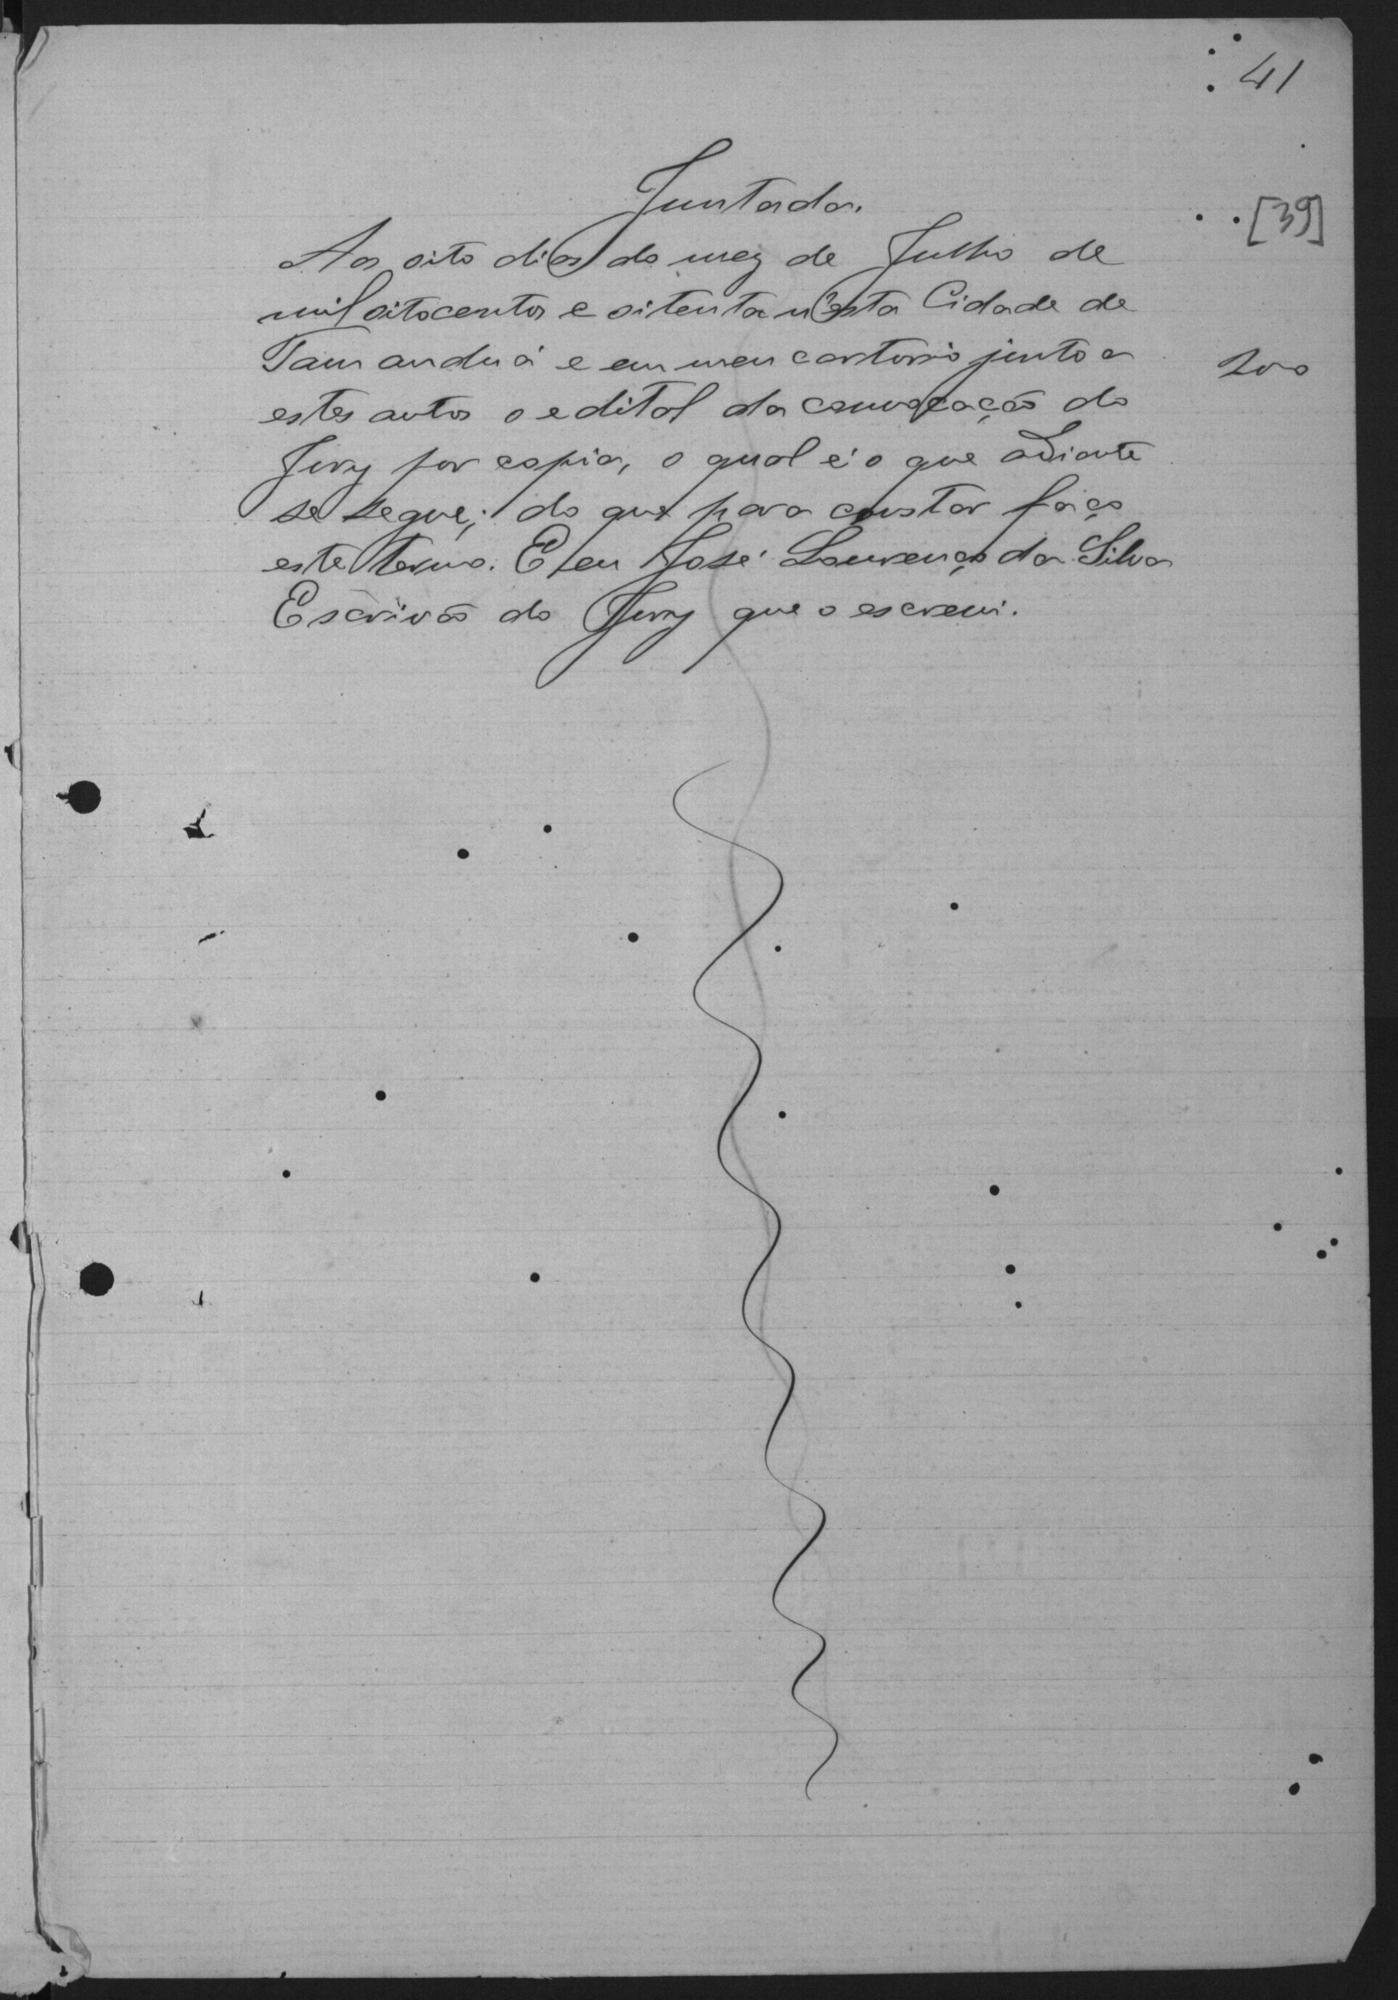 41
Juntada.
[39]
Aos oito dias do mez de Julho de
mil oitocentos e oitenta n'esta Cidade de
Tamanduá e em meu cartorio junto a
200
estes autos o edital da convocação do
Jury por copia, o qual é o que adiante
se segue; do que para constar faço
este termo. E eu José Lourenço da Silva
Escrivão do Jury que o escrevi.